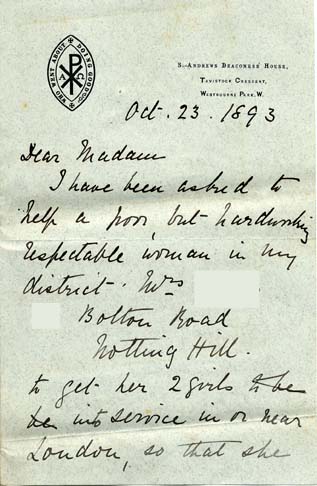 WHO WENT ABOUT DOING GOOD
Α Ω
St. Andrews Deaconess' House,
Tavistock Crescent,
Westbourne Park. W.
Oct. 23. 1893
Dear Madam
I have been asked to
help a poor, but hardworking
respectable woman in my
district. Mrs
Bolton Road
Notting Hill.
to get her 2 girls to be
into service in or near
London, so that she